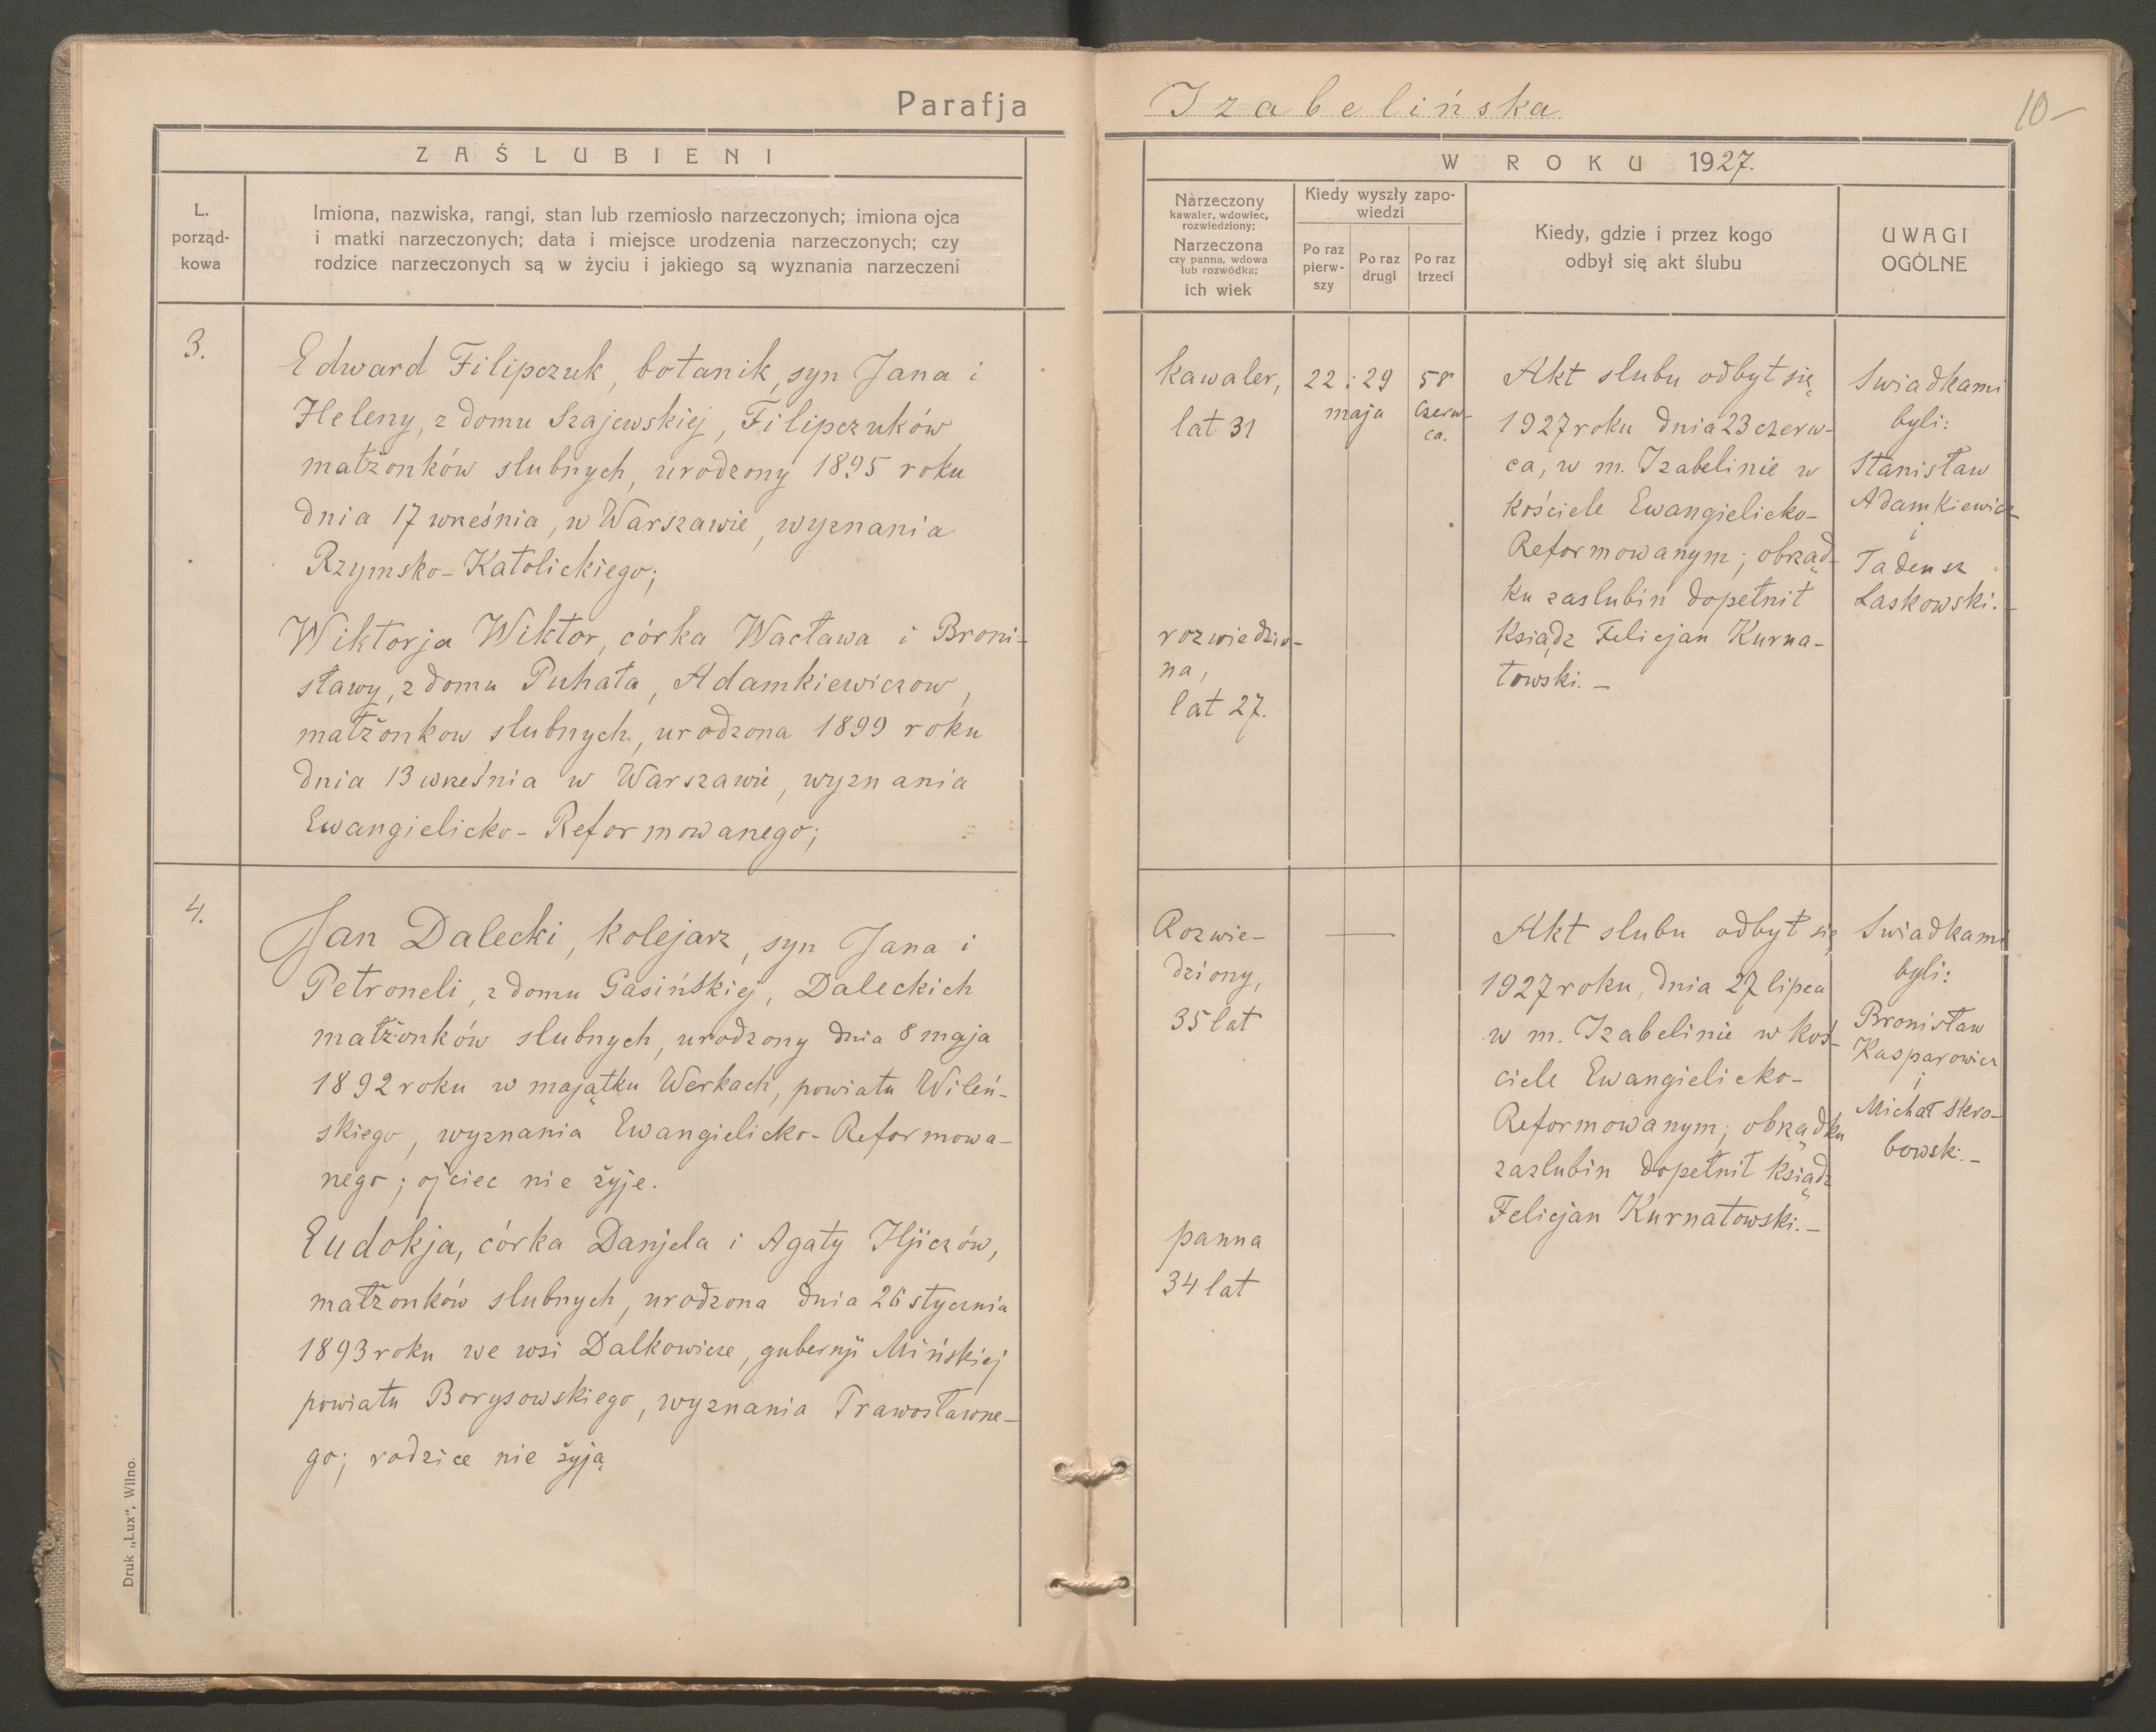 Parafja
Izabelińska
10-
ZAŚLUBIENI
W ROKU 1927.
L.
porząd-
kowa
Imiona, nazwiska, rangi, stan lub rzemiosło narzeczonych; imiona ojca
i matki narzeczonych; data i miejsce urodzenia narzeczonych; czy
rodzice narzeczonych są w życiu i jakiego są wyznania narzeczeni
Narzeczony
kawaler, wdowiec,
rozwiedziony;
Narzeczona
czy panna, wdowa
lub rozwódka;
ich wiek
Kiedy wyszły zapo-
wiedzi
Po raz
pierw-
szy
Po raz
drugi
Po raz
trzeci
Kiedy, gdzie i przez kogo
odbył się akt ślubu
UWAGI
OGÓLNE
3.
Edward Filipczuk, botanik, syn Jana i
Heleny, z domu Szajewskiej, Filipczuków
małżonków slubnych, urodzony 1895 roku
dnia 17 września, w Warszawie, wyznania
Rzymsko-Katolickiego;
Wiktorja Wiktor, córka Wacława i Broni-
sławy, z domu Puhała, Adamkiewiczow,
małżonkow slubnych, urodzona 1899 roku
dnia 13 września w Warszawie, wyznania
Ewangielicko-Reformowanego;
kawaler,
lat 31
rozwiedzio-
na,
lat 27.
22 i 29
maja
58
Czerw-
ca.
Akt slubu odbył się
1927 roku dnia 23 czerw-
ca, w m. Izabelinie w
kościele Ewangielicko-
Reformowanym; obrząd-
ku zaslubin dopełnił
Ksiądz Felicjan Kurna-
towski.-
Swiadkami
byli:
Stanisław
Adamkiewicz
i
Tadeusz
Laskowski.-
4.
Jan Dalecki, kolejarz, syn Jana i
Petroneli, z domu Gasińskiej, Daleckich
małżonków slubnych, urodzony dnia 8 maja
1892 roku w majątku Werkach, powiatu Wileń-
skiego, wyznania Ewangielicko-Reformowa-
nego; ojciec nie żyje.
Eudokja, córka Danjela i Agaty Iljiczów,
małżonków slubnych, urodzona dnia 26 stycznia
1893 roku we wsi Dalkowicze, gubernji Mińskiej
powiatu Borysowskiego, wyznania Prawosławne-
go; rodzice nie żyją
Rozwie-
dziony,
35 lat
panna
34 lat
—
Akt slubu odbył się
1927 roku, dnia 27 lipca
w m. Izabelinie w koś-
ciele Ewangielicko-
Reformowanym; obrządku
zaslubin dopełnił Ksiądz
Felicjan Kurnatowski.-
Swiadkami
byli:
Bronisław
Kasparowicz
i
Michał Skro-
bowski.-
Druk „Lux", Wilno.